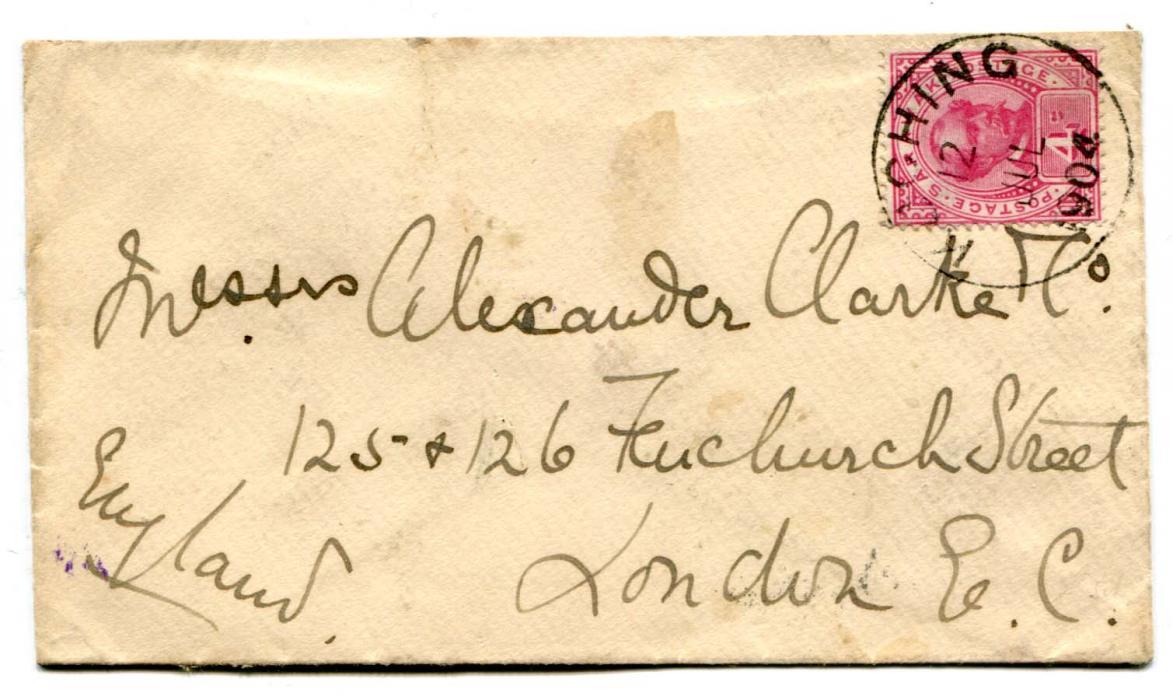 KUCHING
12
JUL
1904
SARAWAK POSTAGE · POSTAGE ·
4
Messrs Alexander Clarke & Co.
125 & 126 Fenchurch Street
London E. C.
England.